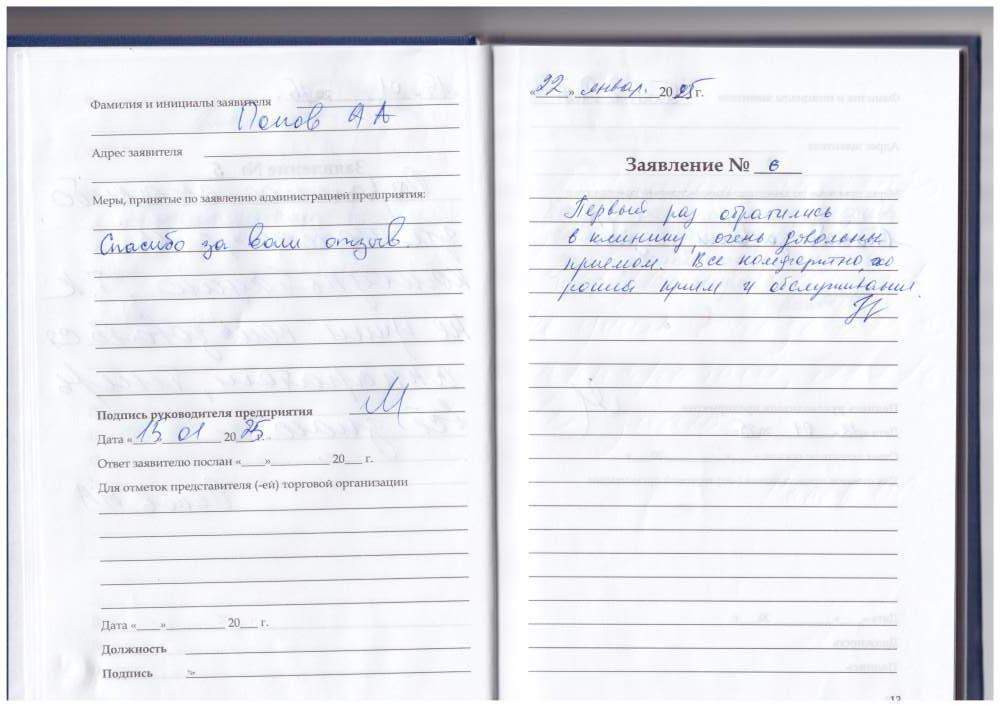 Фамилия и инициалы заявителя
Попов А А
Адрес заявителя
Меры, принятые по заявлению администрацией предприятия:
Спасибо за ваш отзыв.
Подпись руководителя предприятия
Дата «15» 01 2025г.
Ответ заявителю послан «___»__________ 20___ г.
Для отметок представителя (-ей) торговой организации
Дата «____»__________ 20___ г.
Должность
Подпись
«22» январ. 2025г.
Заявление № 6
Первый раз обратились
в клинику, очень довольны
приемом. Все комфортно, хо
роший прием и обслуживание.
12